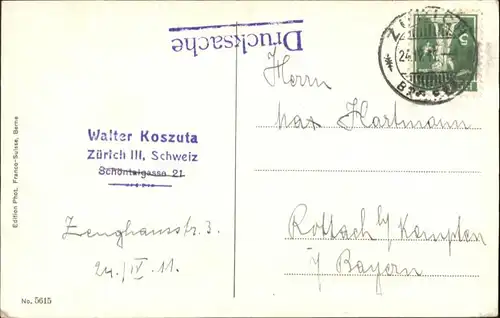 Drucksache
Herrn
Max Hartmann
Rottach b/ Kempten
i/ Bayern
Walter Koszuta
Zürich III, Schweiz
Schöntalgasse 21
Zeughausstr. 3.
24./IV. 11.
Edition Phot. Franco-Suisse, Berne
No. 5615